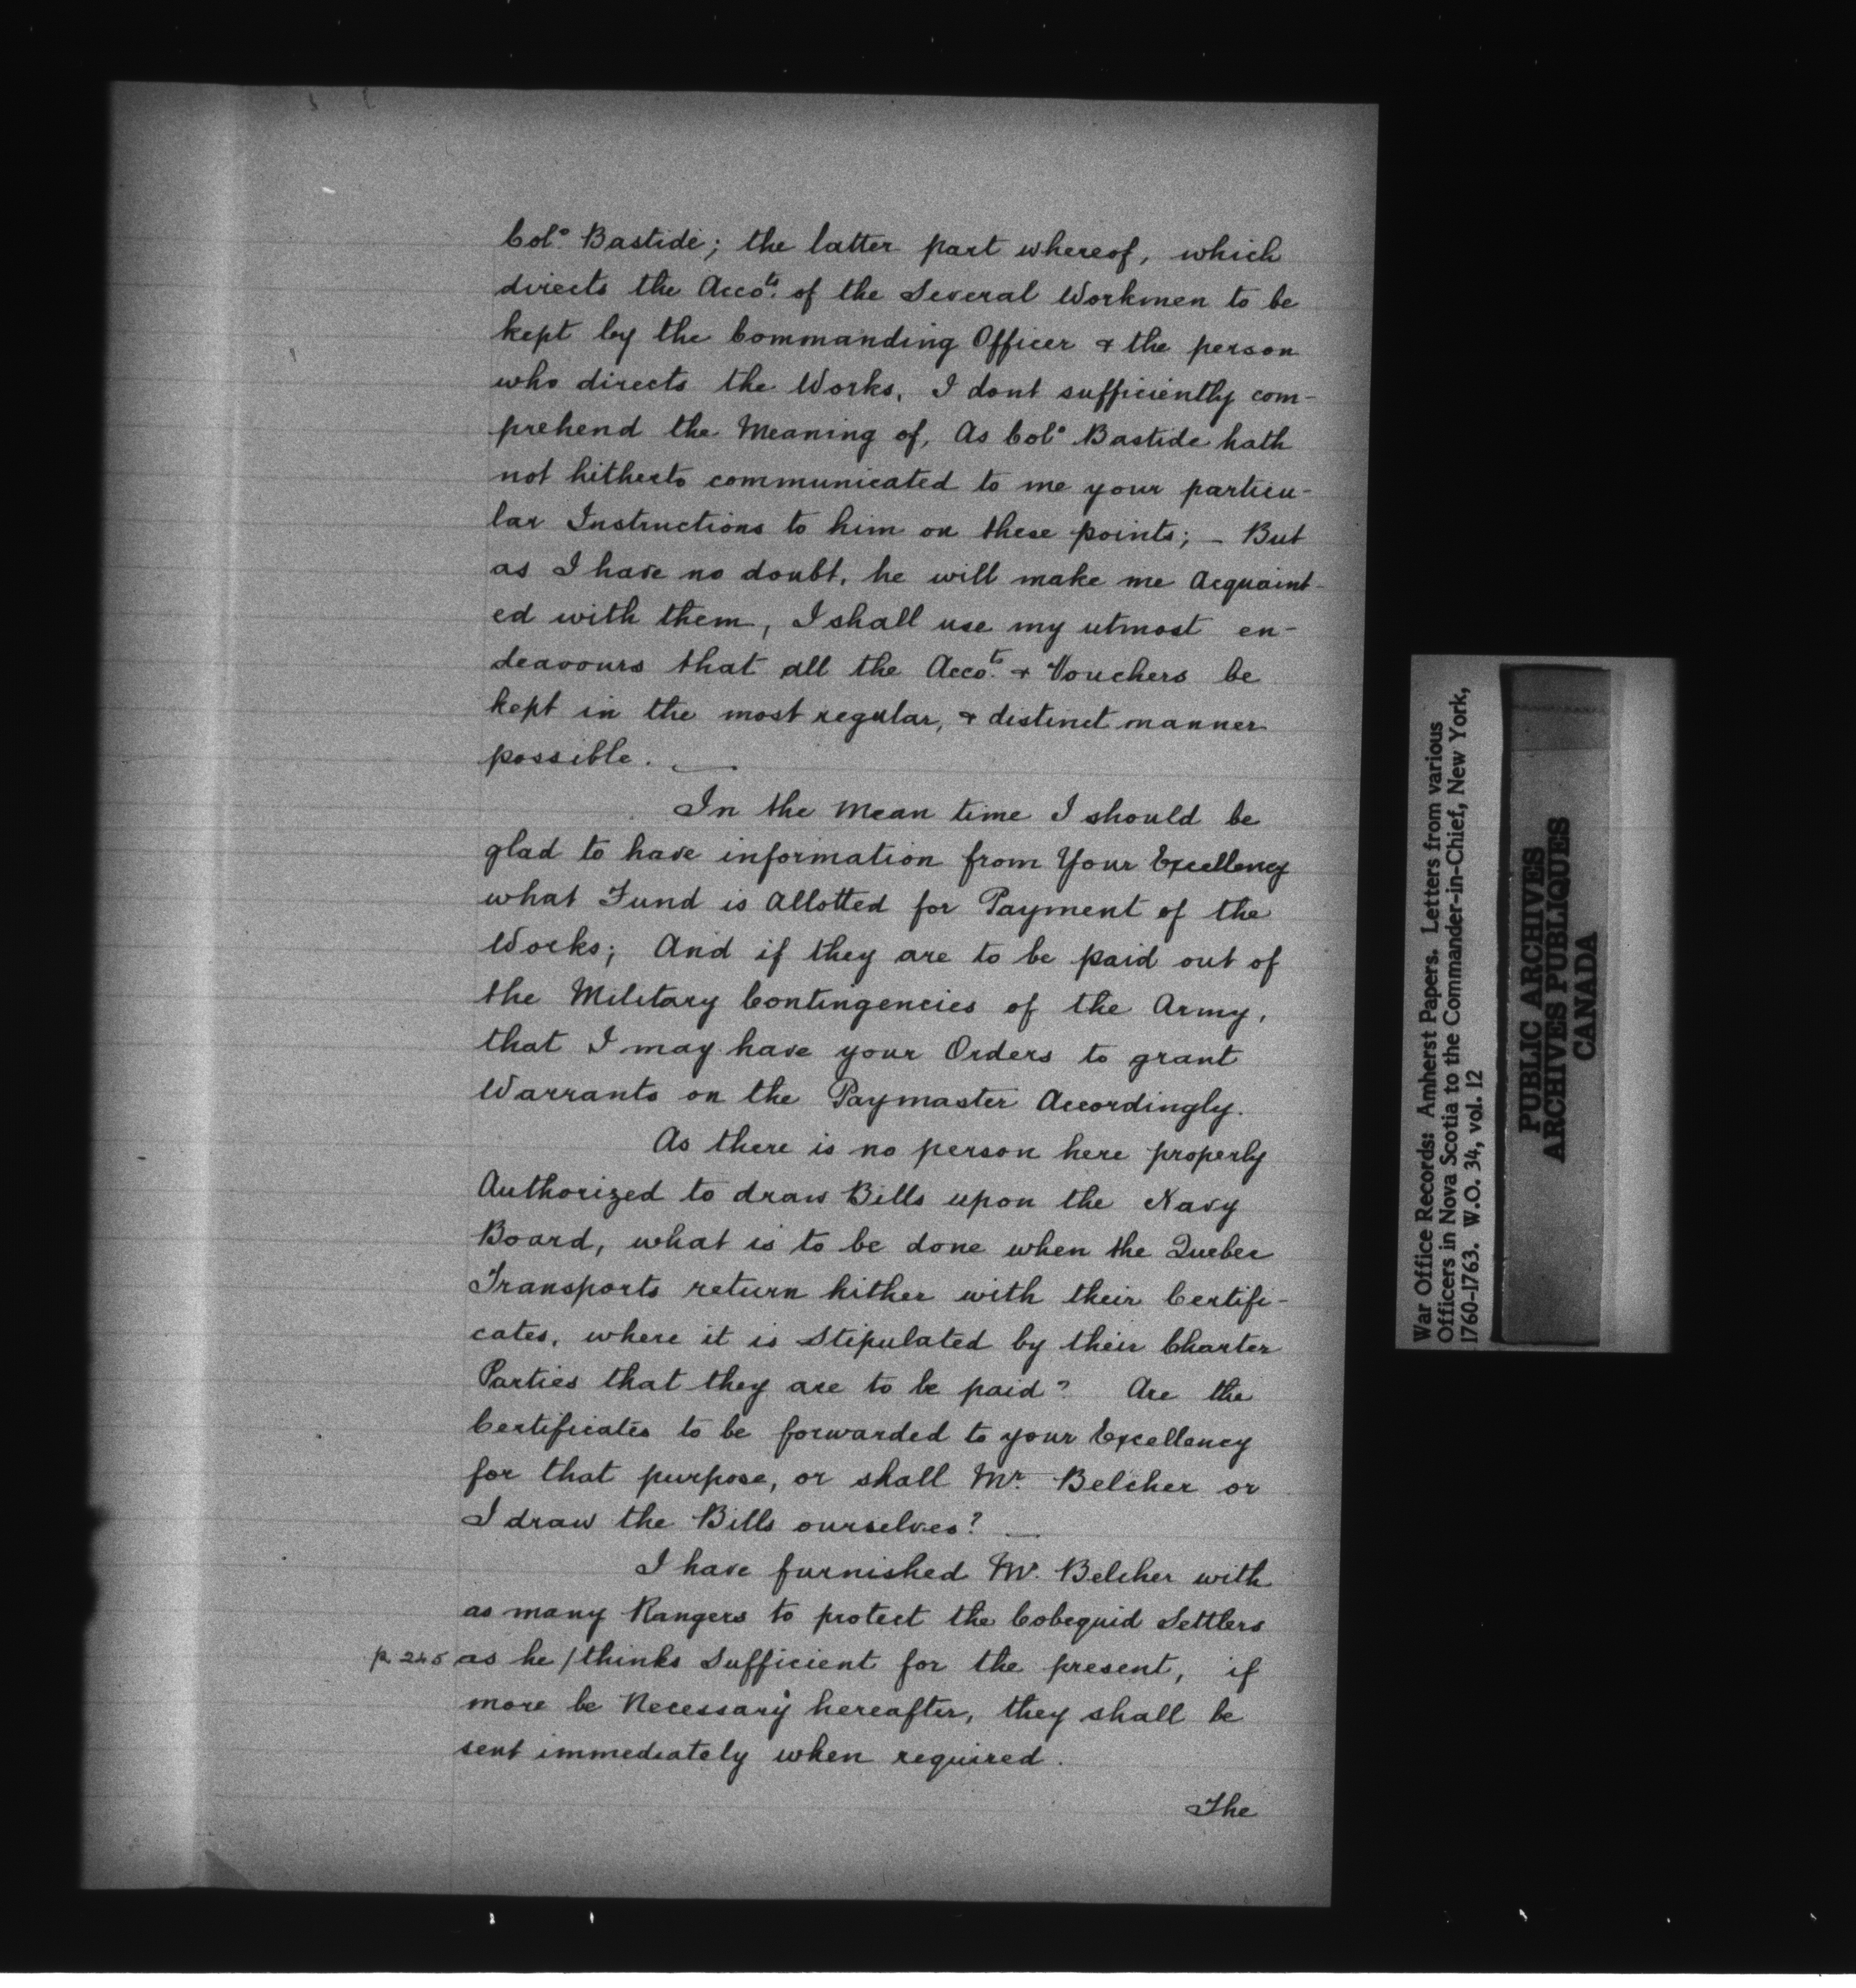 Colº Bastide; the latter part whereof, which
directs the Accots. of the Several Workmen to be
kept by the Commanding Officer & the person
who directs the Works, I dont sufficiently com-
prehend the Meaning of, As Colº Bastide hath
not hitherto communicated to me your particu-
lar Instructions to him on these points; - But
as I have no doubt, he will make me Acquaint-
ed with them, I shall use my utmost en-
deavours that all the Accots. & Vouchers be
kept in the most regular, & distinct manner
possible. —
In the Mean time I should be
glad to have information from Your Excellency
what Fund is Allotted for Payment of the
Works; And if they are to be paid out of
the Military Contingencies of the Army,
that I may have your Orders to grant
Warrants on the Paymaster Accordingly.
As there is no person here properly
Authorized to draw Bills upon the Navy
Board, what is to be done when the Quebec
Transports return hither with their Certifi-
cates, where it is Stipulated by their Charter
Parties that they are to be paid? Are the
Certificates to be forwarded to your Excellency
for that purpose, or shall Mr. Belcher or
I draw the Bills ourselves? —
I have furnished Mr. Belcher with
as many Rangers to protect the Cobequid Settlers
p. 245 as he / thinks Sufficient for the present, if
more be Necessary hereafter, they shall be
sent immediately when required.
The
War Office Records: Amherst Papers. Letters from various
Officers in Nova Scotia to the Commander-in-Chief, New York,
1760-1763. W.O. 34, vol. 12
PUBLIC ARCHIVES
ARCHIVES PUBLIQUES
CANADA